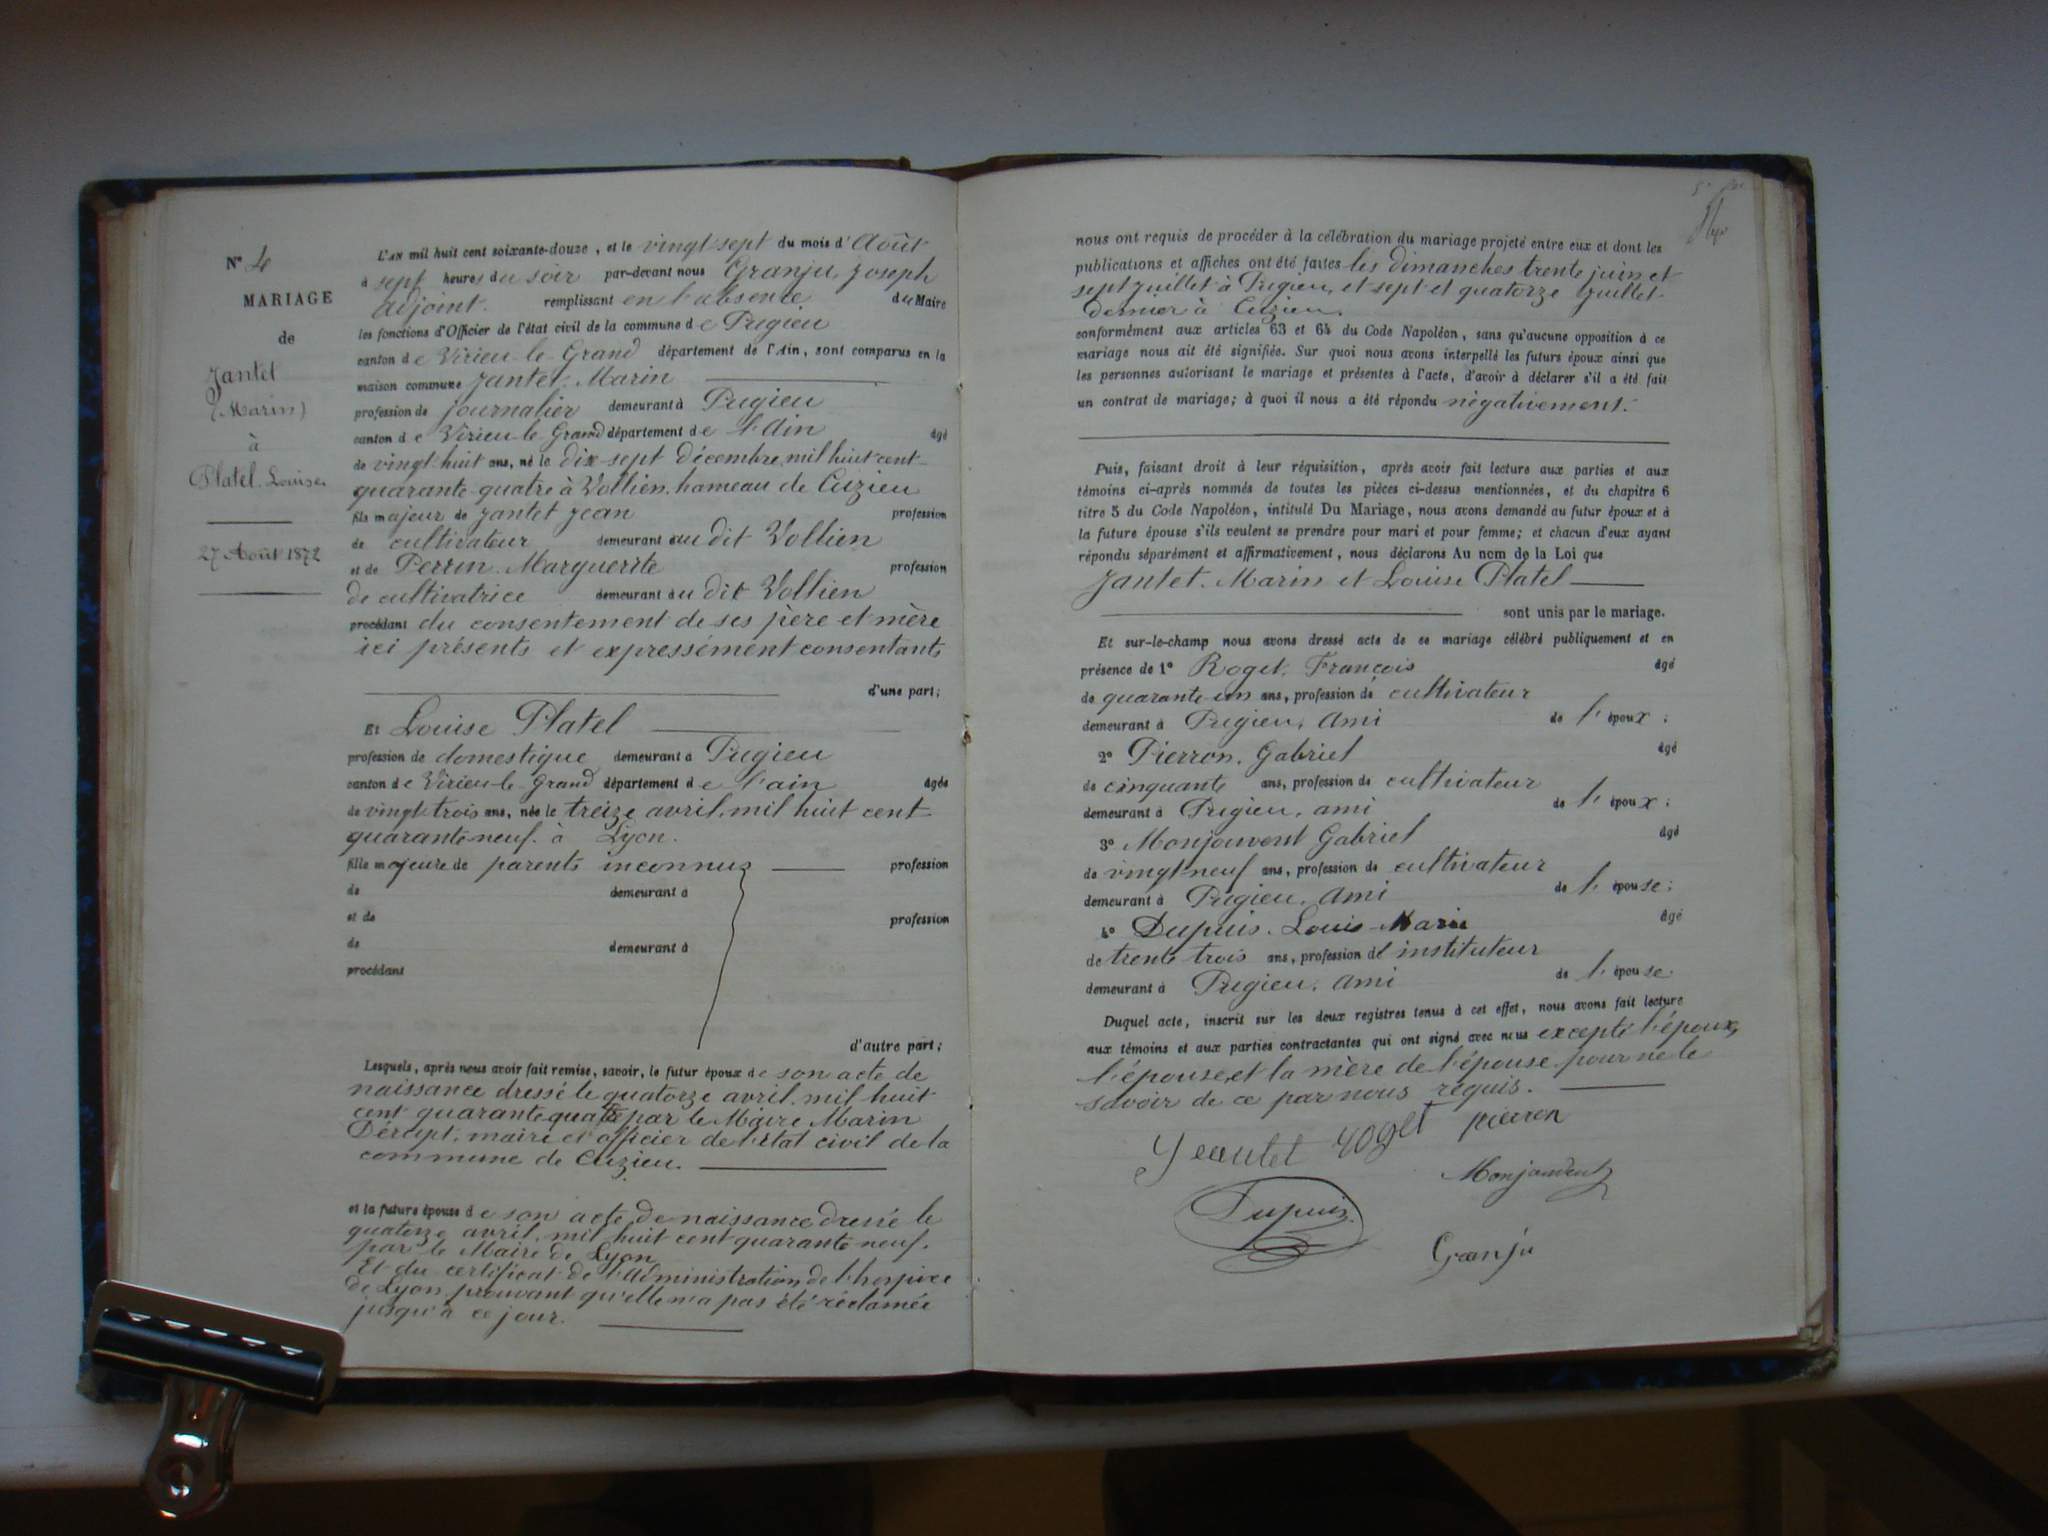 N° 4
MARIAGE
de
Jantet
(Marin)
à
Platel Louise
27 Août 1872
L'AN mil huit cent soixante-douze, et le vingt sept du mois d'Août
à sept heures du soir par-devant nous Granju, Joseph
adjoint. remplissant en l'absence du Maire
les fonctions d'Officier de l'état civil de la commune de Pugieu
canton de Virieu-le-Grand département de l'Ain, sont comparus en la
maison commune Jantet. Marin
profession de journalier demeurant à Pugieu
canton de Virieu-le-Grand département de l'Ain âgé
de vingt-huit ans, né le dix sept décembre mil huit cent
quarante-quatre à Vollien, hameau de Cuzieu
fils majeur de Jantet Jean profession
de cultivateur demeurant au dit Vollien
et de Perrin. Marguerite profession
de cultivatrice demeurant au dit Vollien
procédant du consentement de ses père et mère
ici présents et expressément consentants
d'une part;
Et Louise Platel
profession de domestique demeurant à Pugieu
canton de Virieu-le-Grand département de l'ain âgée
de vingt-trois ans, née le treize avril mil huit cent
quarante neuf. à Lyon.
fille majeure de parents inconnus profession
de demeurant à
et de profession
de demeurant à
procédant
d'autre part;
Lesquels, après nous avoir fait remise, savoir, le futur époux de son acte de
naissance dressé le quatorze avril mil huit
cent quarante quatre par le Maire Marin
maire et officier de l'état civil de la
commune de Cuzieu.
et la future épouse de son acte de naissance dressé le
quatorze avril, mil huit cent quarante neuf.
par le Maire de Lyon
Et du certificat de l'administration de l'hospice
de Lyon prouvant qu'elle n'a pas été réclamée
jusqu'à ce jour.
nous ont requis de procéder à la célébration du mariage projeté entre eux et dont les
publications et affiches ont été faites les dimanches trente juin et
sept juillet à Pugieu, et sept et quatorze Juillet
dernier à Cuzieu.
conformément aux articles 63 et 64 du Code Napoléon, sans qu'aucune opposition à ce
mariage nous ait été signifiée. Sur quoi nous avons interpellé les futurs époux ainsi que
les personnes autorisant le mariage et présentes à l'acte, d'avoir à déclarer s'il a été fait
un contrat de mariage; à quoi il nous a été répondu négativement.
Puis, faisant droit à leur réquisition, après avoir fait lecture aux parties et aux
témoins ci-après nommés de toutes les pièces ci-dessus mentionnées, et du chapitre 6
titre 5 du Code Napoléon, intitulé Du Mariage, nous avons demandé au futur époux et à
la future épouse s'ils veulent se prendre pour mari et pour femme; et chacun d'eux ayant
répondu séparément et affirmativement, nous déclarons Au nom de la Loi que
Jantet. Marin et Louise Platel
sont unis par le mariage.
Et sur-le-champ nous avons dressé acte de ce mariage célébré publiquement et en
présence de 1° Roget. François âgé
de quarante-un ans, profession de cultivateur
demeurant à Pugieu, ami de l'époux;
2° Pierron. Gabriel âgé
de cinquante ans, profession de cultivateur
demeurant à Pugieu, ami de l'époux;
3° Monjouvent Gabriel âgé
de vingt neuf ans, profession de cultivateur
demeurant à Pugieu, ami de l'épouse;
4° Dupuis. Louis-Marie âgé
de trente trois ans, profession d'instituteur
demeurant à Pugieu. ami de l'épouse
Duquel acte, inscrit sur les deux registres tenus à cet effet, nous avons fait lecture
aux témoins et aux parties contractantes qui ont signé avec nous excepté l'époux,
l'épouse, et la mère de l'épouse pour ne le
savoir de ce par nous requis.
Jeantet roget pierron
Monjouvent
Dupuis
Granju